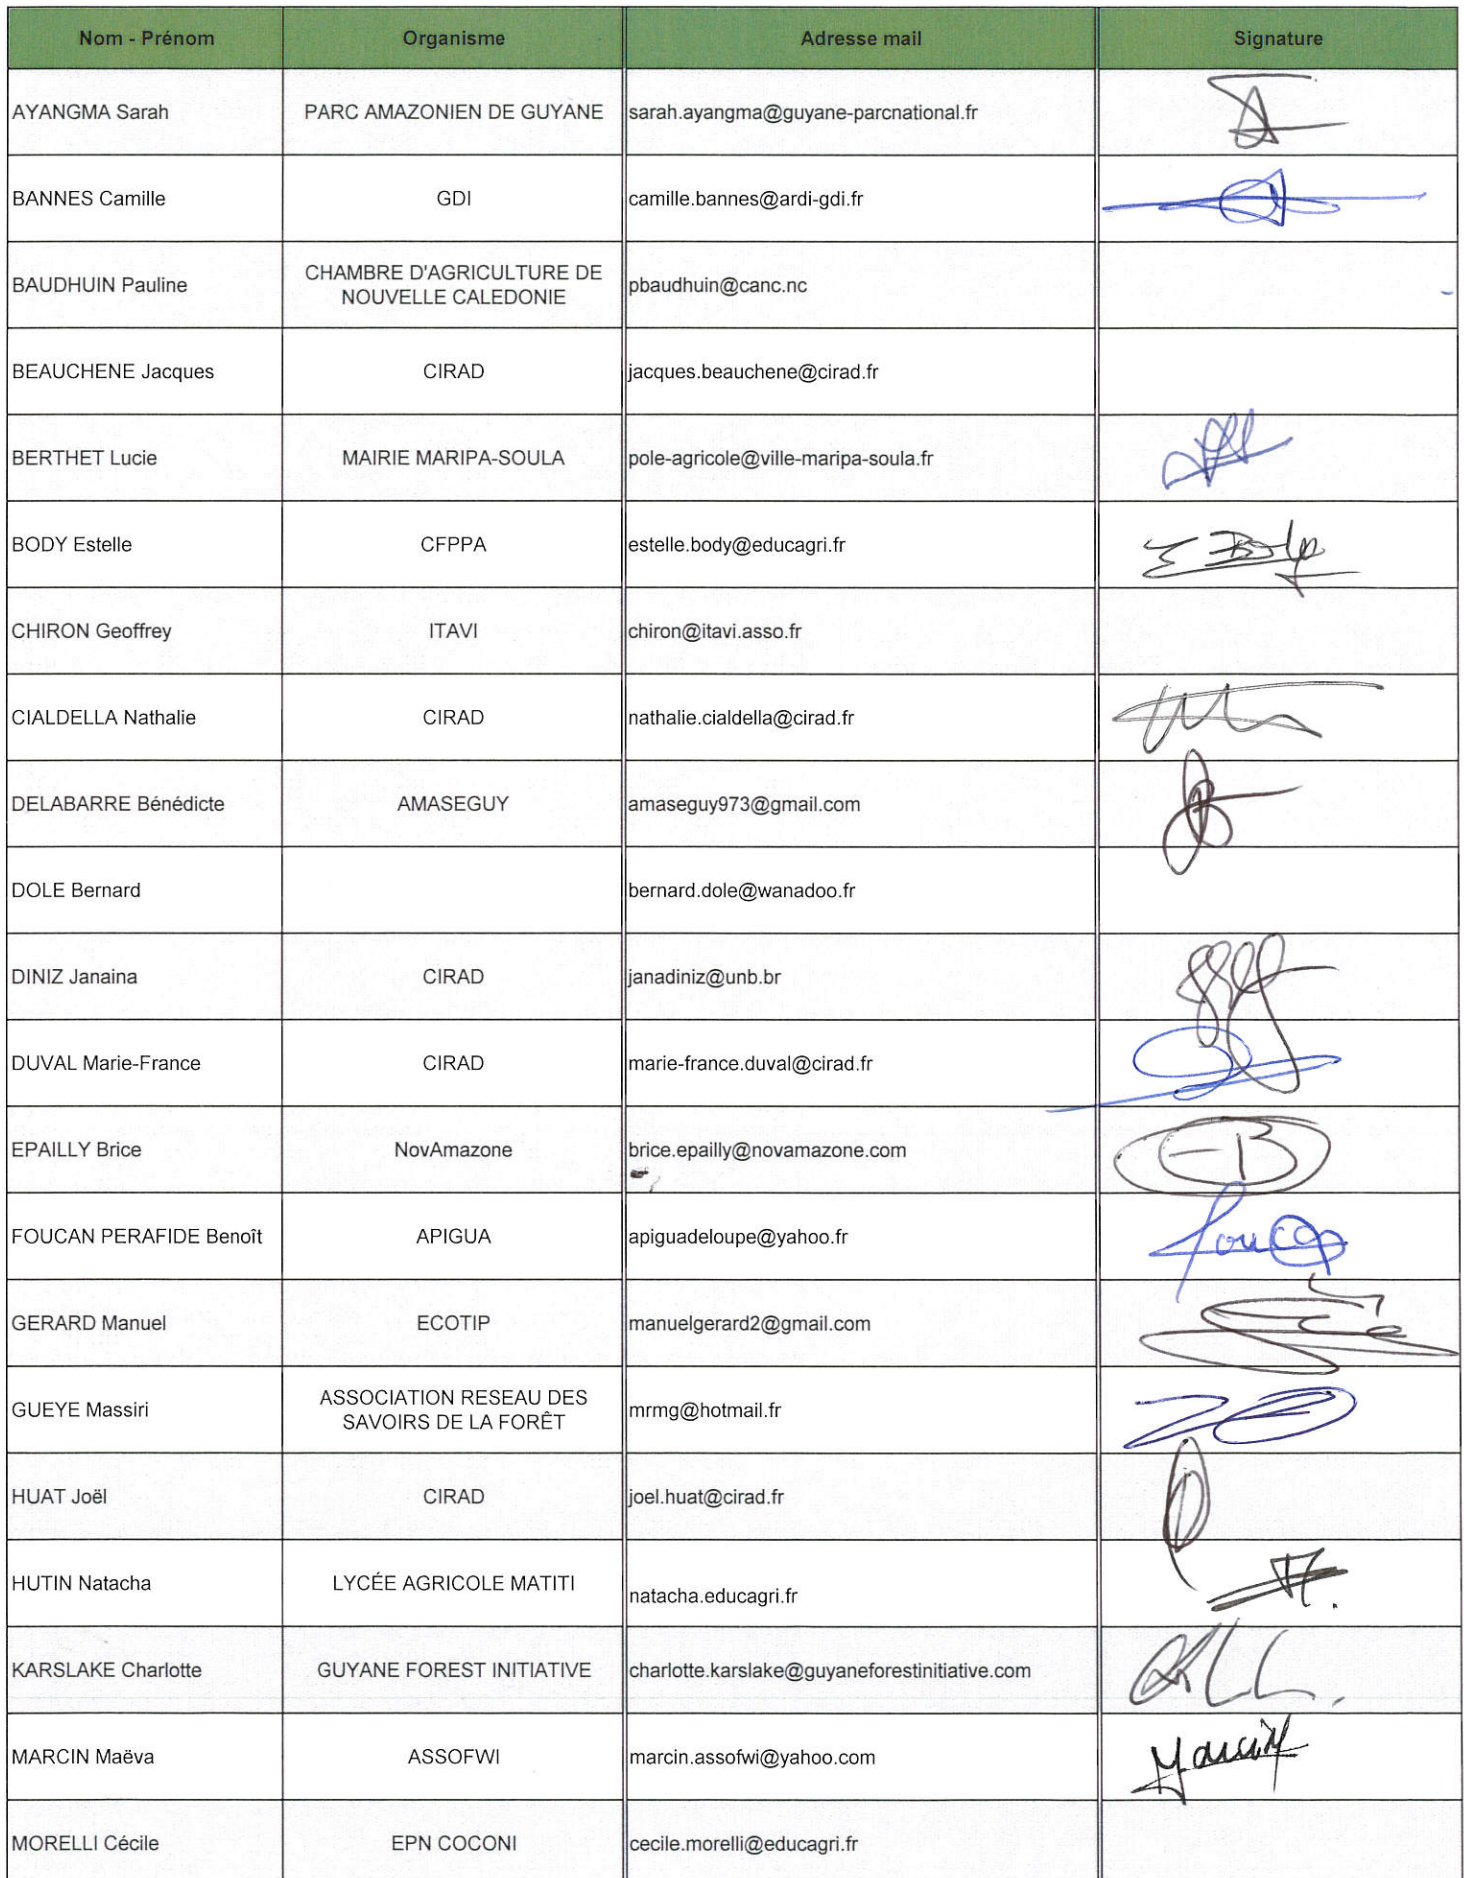 Nom - Prénom Organisme Adresse mail Signature
AYANGMA Sarah PARC AMAZONIEN DE GUYANE sarah.ayangma@guyane-parcnational.fr
BANNES Camille GDI camille.bannes@ardi-gdi.fr
BAUDHUIN Pauline CHAMBRE D'AGRICULTURE DE
NOUVELLE CALEDONIE pbaudhuin@canc.nc
BEAUCHENE Jacques CIRAD jacques.beauchene@cirad.fr
BERTHET Lucie MAIRIE MARIPA-SOULA pole-agricole@ville-maripa-soula.fr
BODY Estelle CFPPA estelle.body@educagri.fr
CHIRON Geoffrey ITAVI chiron@itavi.asso.fr
CIALDELLA Nathalie CIRAD nathalie.cialdella@cirad.fr
DELABARRE Bénédicte AMASEGUY amaseguy973@gmail.com
DOLE Bernard bernard.dole@wanadoo.fr
DINIZ Janaina CIRAD janadiniz@unb.br
DUVAL Marie-France CIRAD marie-france.duval@cirad.fr
EPAILLY Brice NovAmazone brice.epailly@novamazone.com
FOUCAN PERAFIDE Benoît APIGUA apiguadeloupe@yahoo.fr
GERARD Manuel ECOTIP manuelgerard2@gmail.com
GUEYE Massiri ASSOCIATION RESEAU DES
SAVOIRS DE LA FORÊT mrmg@hotmail.fr
HUAT Joël CIRAD joel.huat@cirad.fr
HUTIN Natacha LYCÉE AGRICOLE MATITI natacha.educagri.fr
KARSLAKE Charlotte GUYANE FOREST INITIATIVE charlotte.karslake@guyaneforestinitiative.com
MARCIN Maëva ASSOFWI marcin.assofwi@yahoo.com
MORELLI Cécile EPN COCONI cecile.morelli@educagri.fr